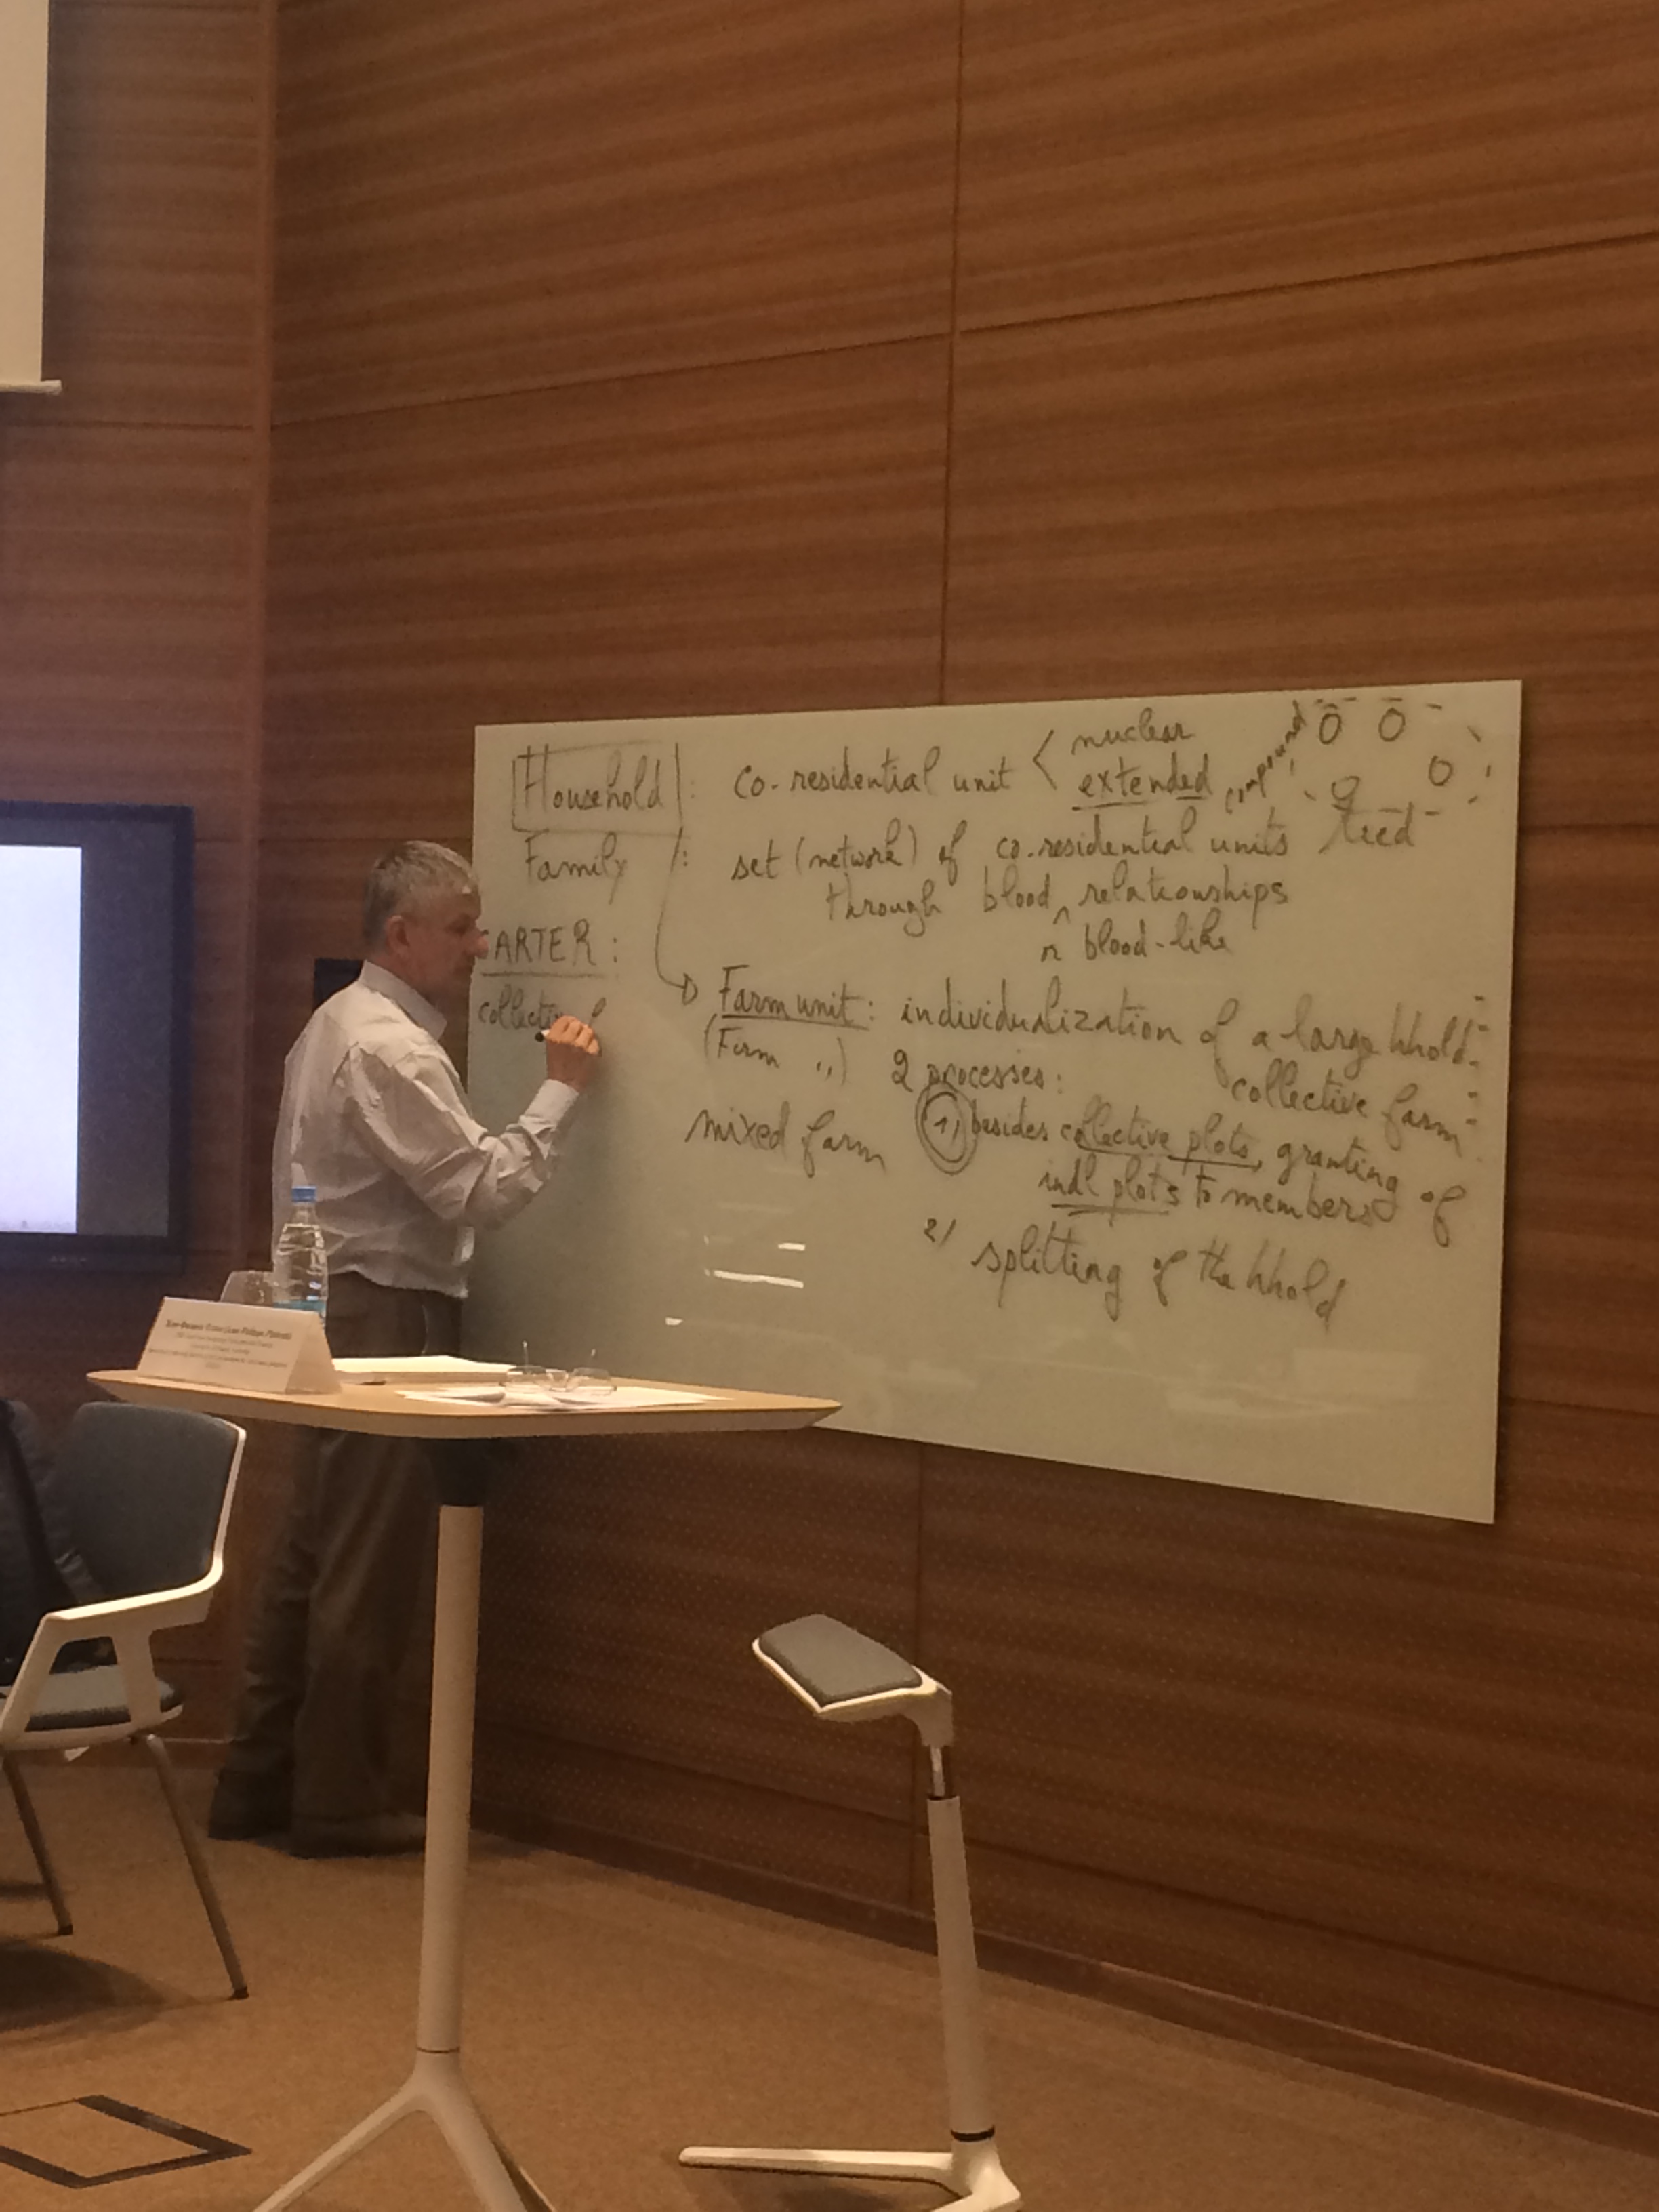 Household : co-residential unit < nuclear
extended
compound
Family : set (network) of co-residential units tied
through blood relationships
blood-like
ARTER :
Farm unit : individualization of a large hhold
collective farm
(Firm ,,)
2 processes:
mixed farm
1) besides collective plots, granting of
indl plots to members
2/ splitting of the hhold